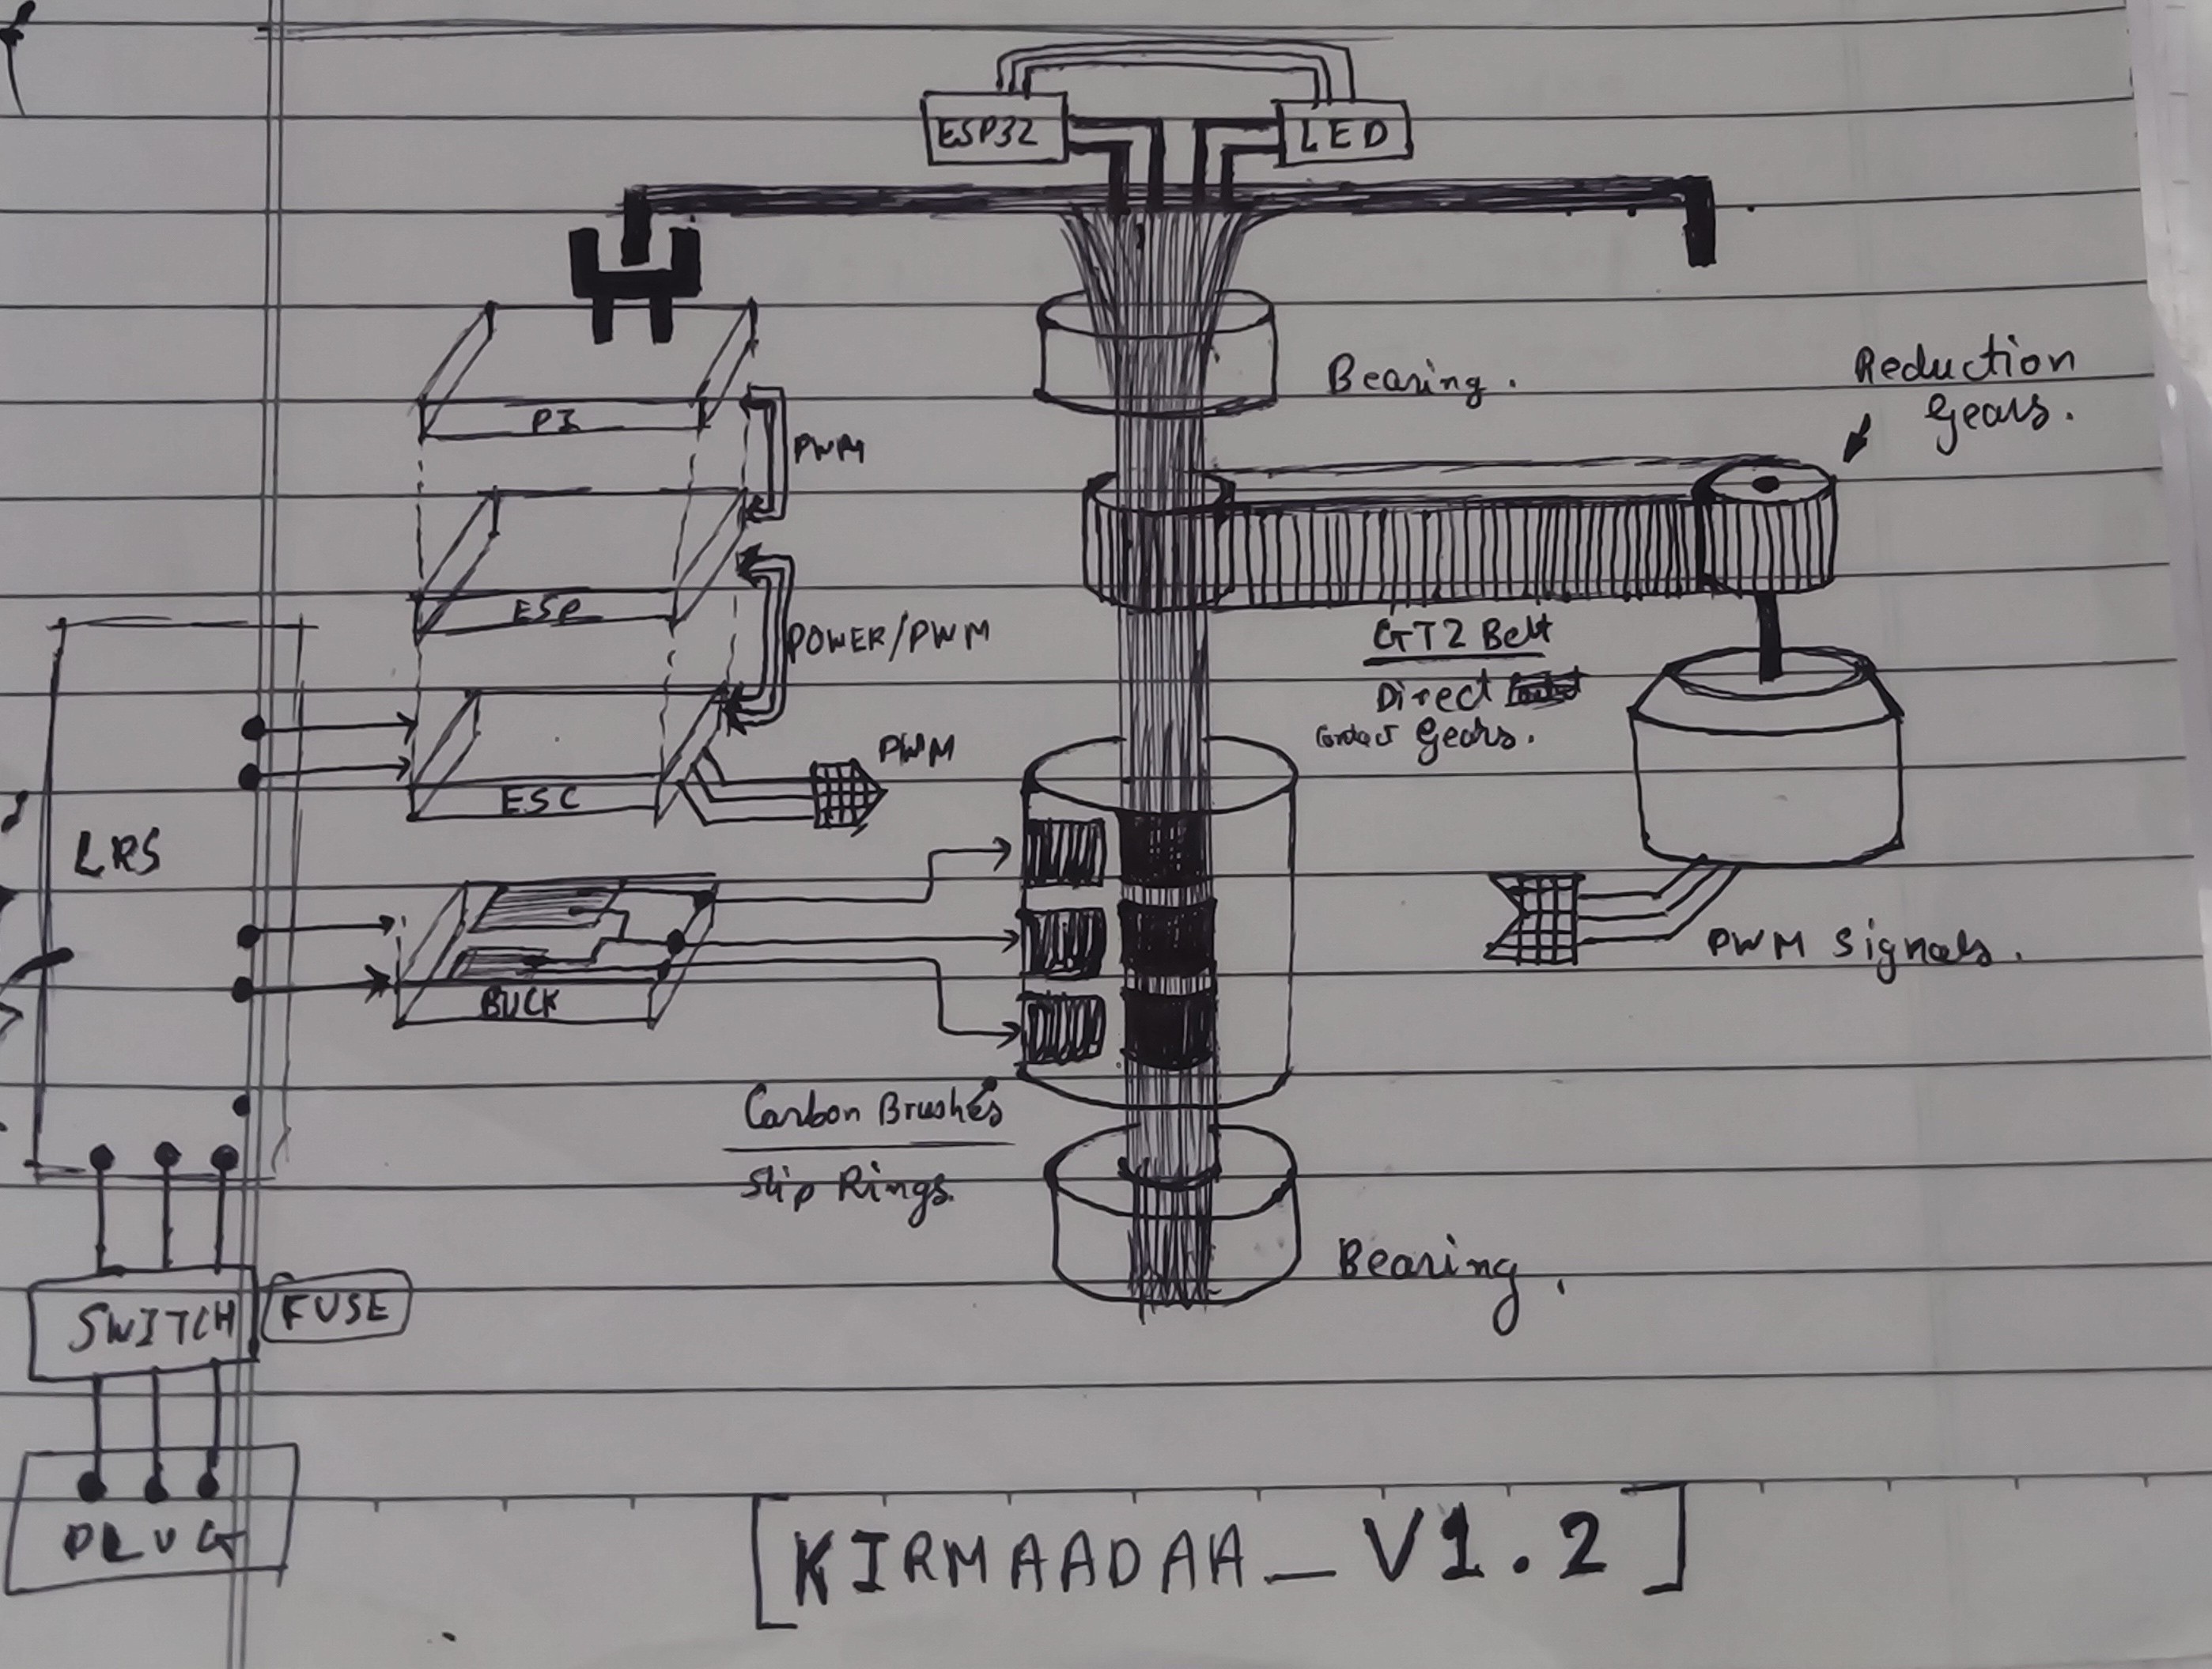 ESP32
LED
Bearing.
Reduction
Gears.
PI
PWM
ESP
POWER/PWM
GT2 Belt
Direct
Contact Gears.
PWM
ESC
LRS
BUCK
PWM Signals.
Carbon Brushes
Slip Rings.
Bearing.
SWITCH
FUSE
PLUG
[KIRMAADAA_V1.2]